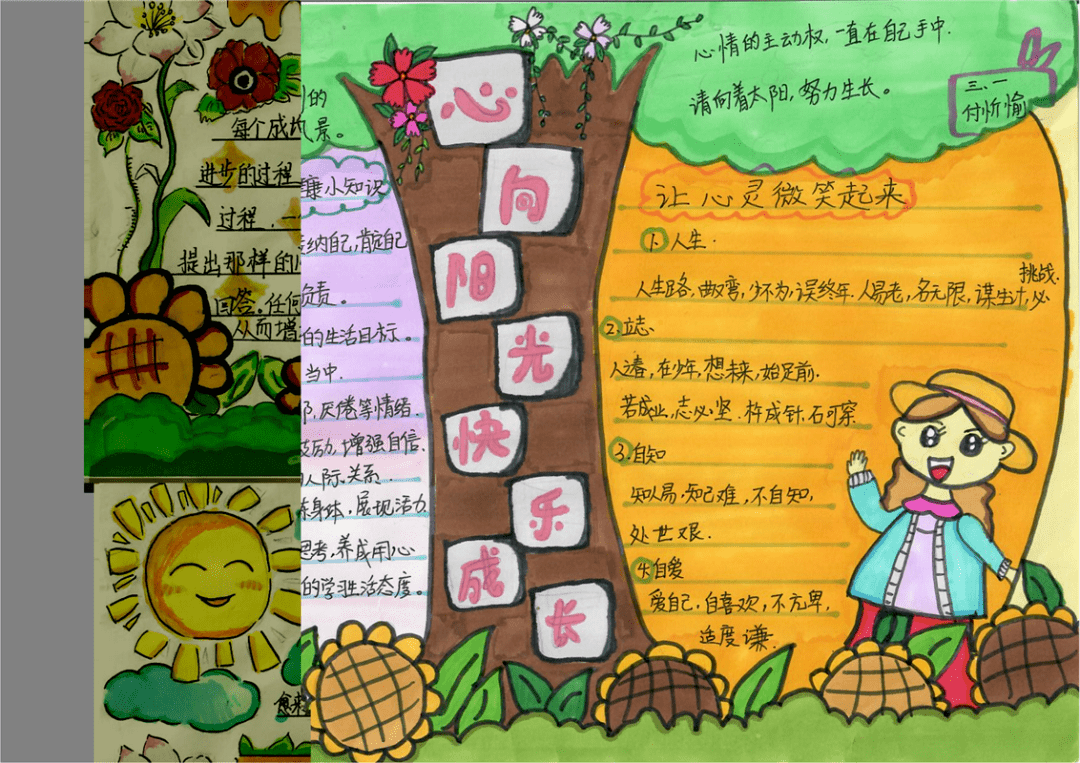 心情的主动权，一直在自己手中.
请向着太阳，努力生长。
三.一
付忻愉
心
向
阳
光
快
乐
成
长
让心灵微笑起来
1.人生.
挑战.
人生路，曲取弯，少不为，误终年.人易老，名无限，谋生计，必
2.立志
人逢春，在少年，想未来，始足前.
若成业，志必坚.杵成针.石可穿.
3.自知
知人易.知己难，不自知，
处世艰.
4.自爱
爱己，自喜欢，不亢卑，
适度谦.
康小知识
纳自己，肯定自己
负责。
的生活目标。
当中.
厌倦等情绪.
鼓励，增强自信.
人际关系.
身体，展现活力
思考，养成用心
的学习生活态度。
的
每个成
景。
进步的过程
过程.一
提出那样的
回答.任何
从而增